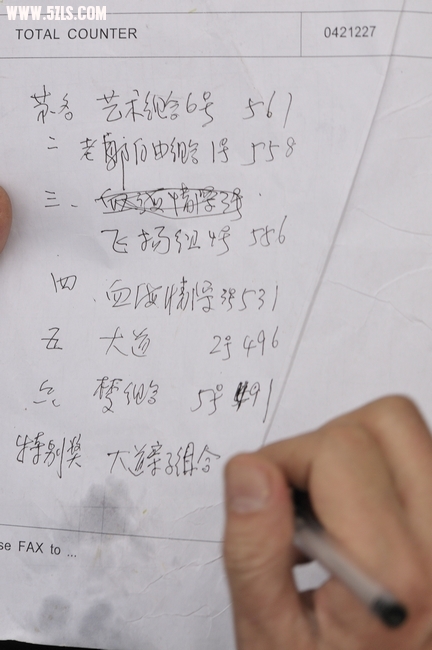 WWW.5ZLS.COM
TOTAL COUNTER 0421227
第一名 艺术组合6号 561
二 老郭自由组合1号 558
三、
飞扬组4号 556
四 血海情缘3号531
五 大道 2号496
六 梦组合 5号 491
特别奖 大道亲子组合
se FAX to ...